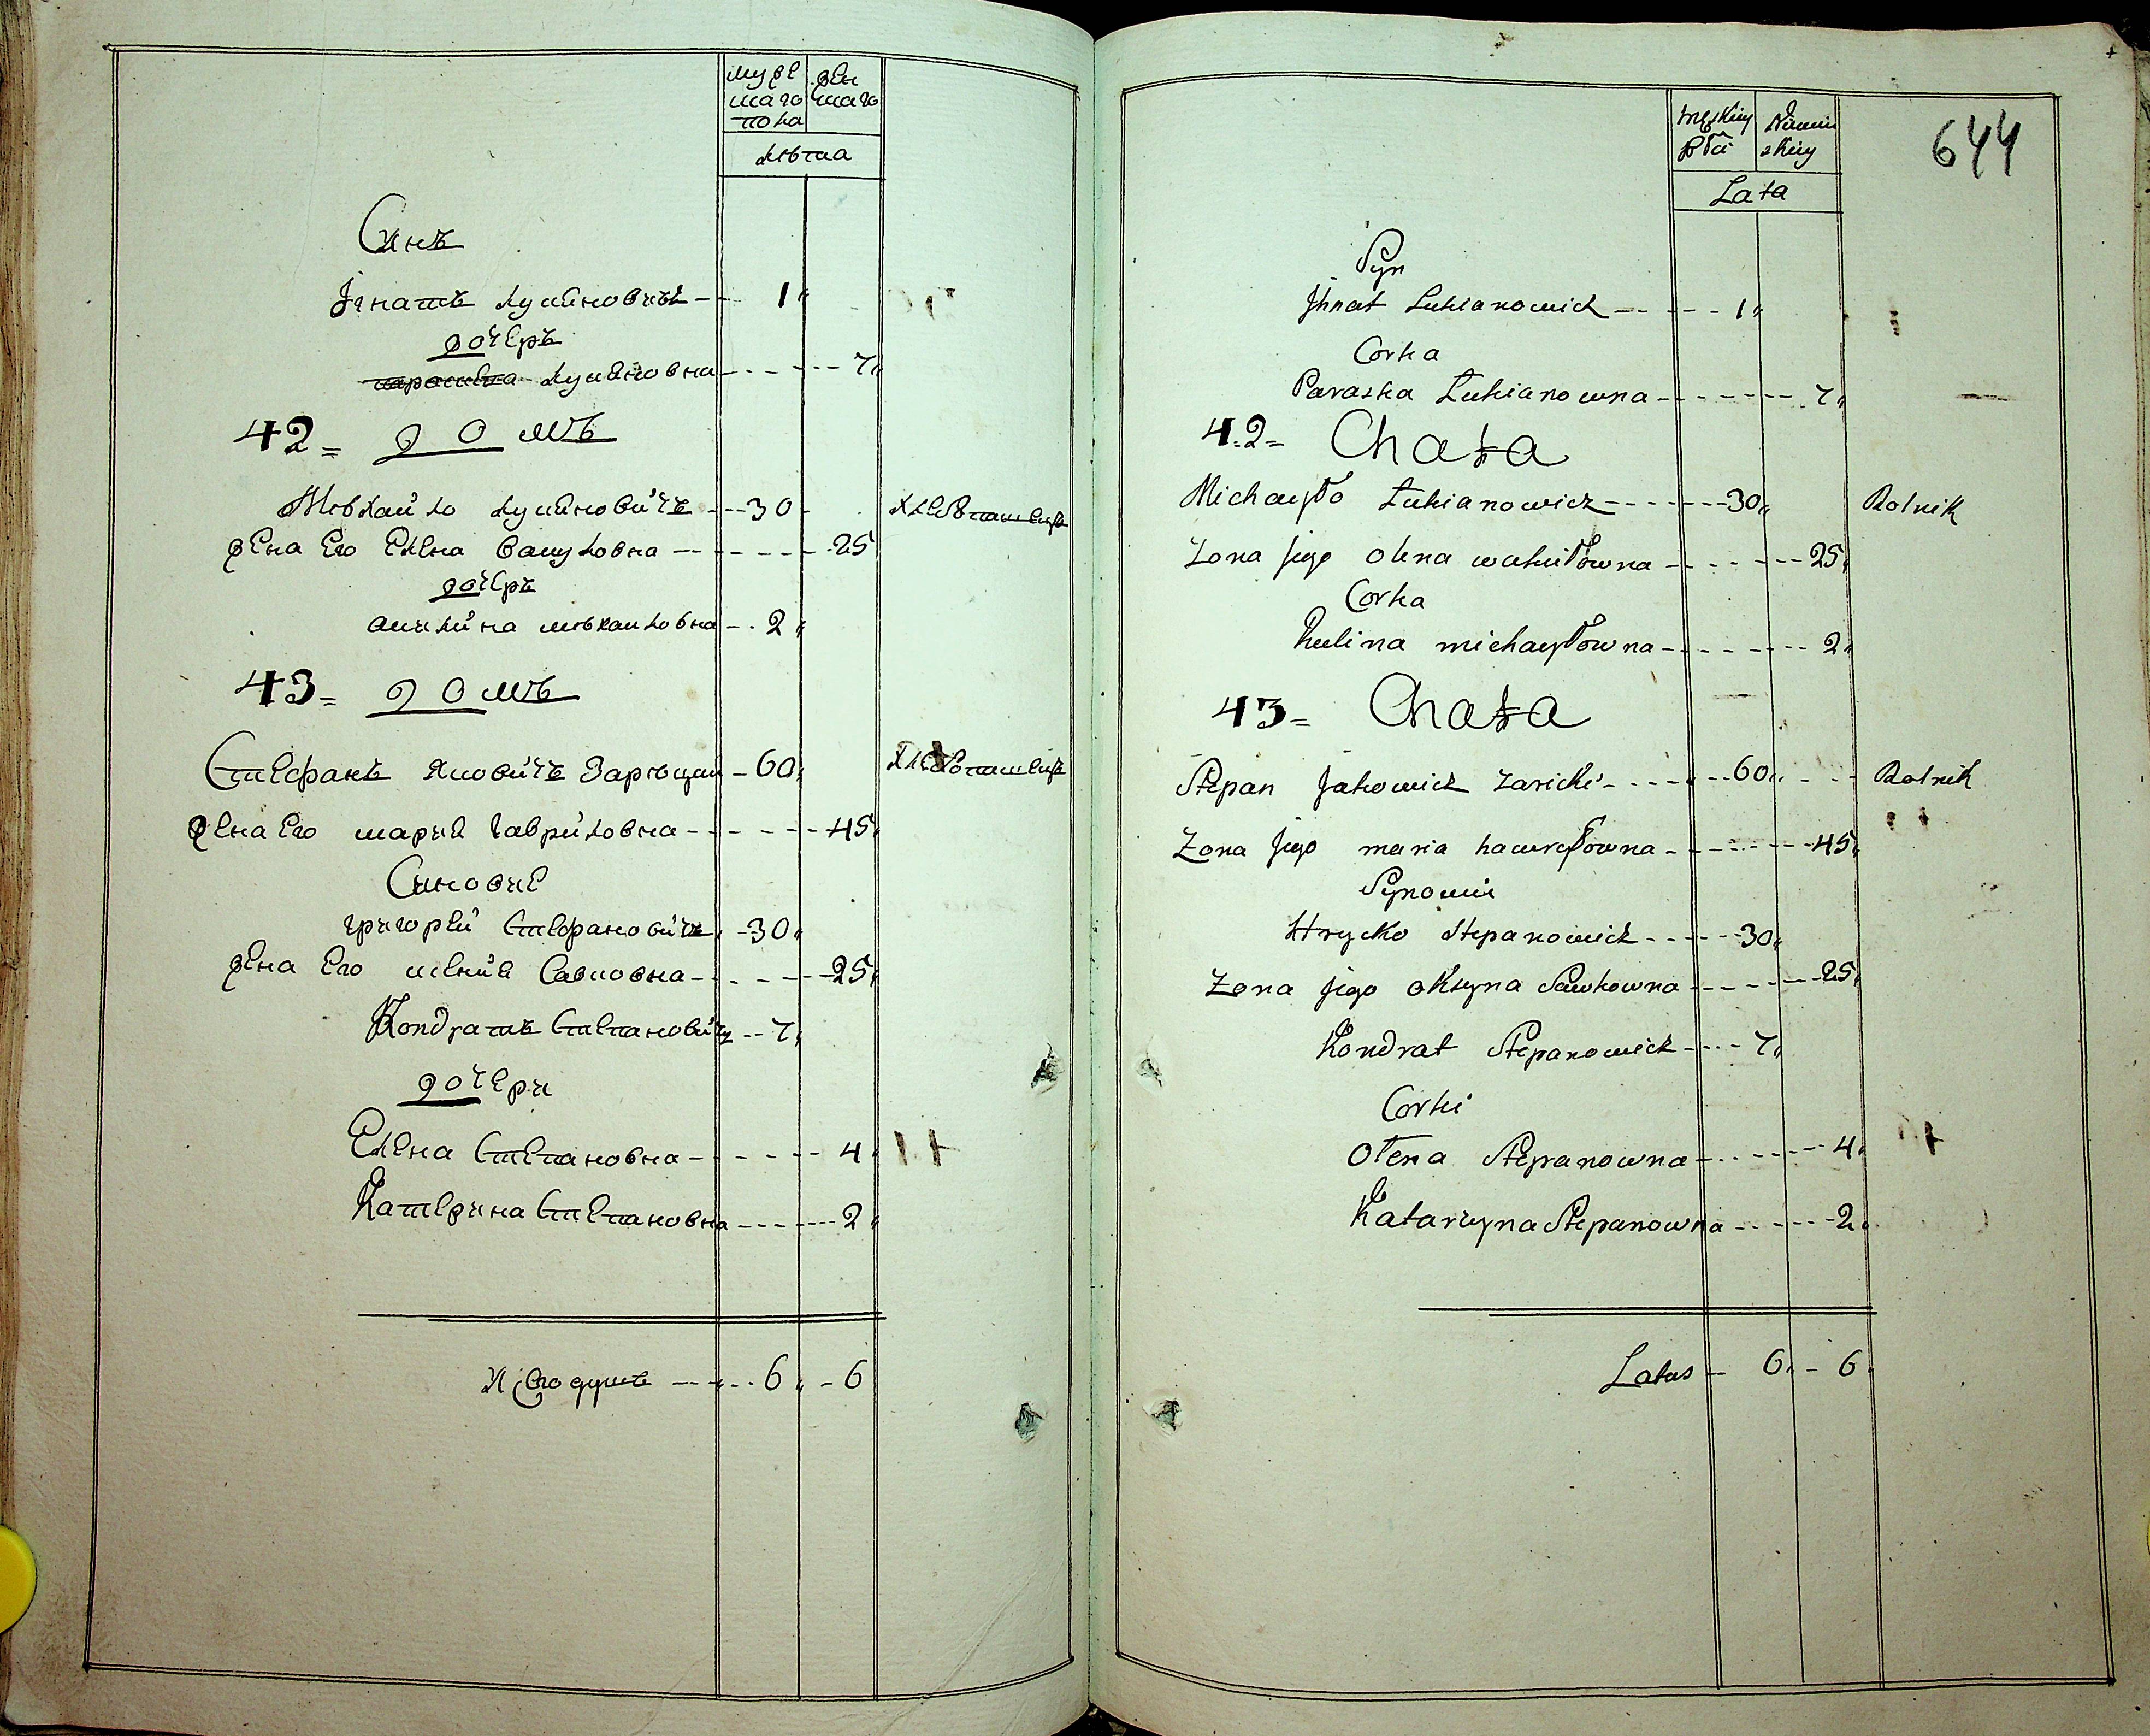 мужеска го пола
женскаго
лѣта
Синъ
Ігнатъ лукіновичъ 1
дочеръ
параскева лукіновна 7
42 = домъ
Михайло лукіновичъ 30 хлебопашецъ
жена Его Елена Вакуловна 25
дочеръ
акилина михаиловна 2
43 = домъ
Стефанъ Яковичъ Зарѣцки 60 хлебопашецъ
жена Его мария гавриловна 45
Синовие
григорей Стефановичъ 30
жена Его ксения Савковна 25
Кондратъ Степановичъ 7
дочери
Елена Степановна 4
Катерина Степановна 2
Итого душъ 6 6
644
męskiey płci
Niewieskiey
Lata
Syn
Jhnat Lukianowicz 1
Corka
Paraska Łukianowna 7
42 = Chata
Michayło Łukianowicz 30 Rolnik
Zona jego olena wakułowna 25
Corka
Kulina michayłowna 2
43 = Chata
Stepan Jakowicz zaricki 60 Rolnik
Zona jego maria hawryłowna 45
Synowie
Hrycko Stepanowicz 30
Zona jego oksyna Sawkowna 25
Kondrat Stepanowicz 7
Corki
Ołena Stepanowna 4
Katarzyna Stepanowna 2
Latus 6 6